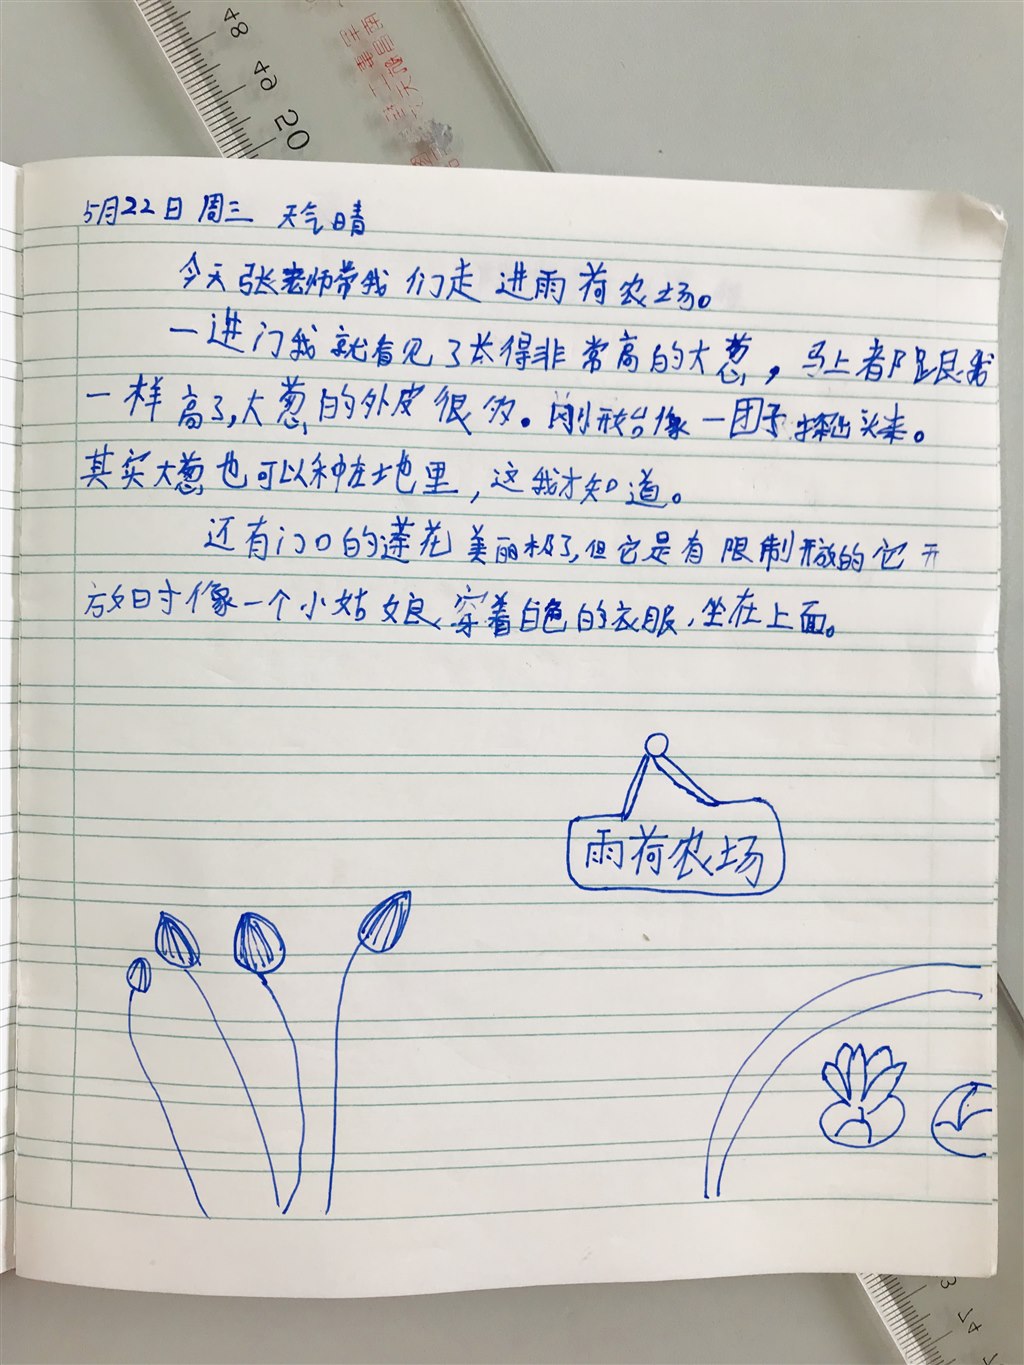 48
49
20
5月22日 周三 天气晴
今天张老师带我们走进雨荷农场。
一进门我就看见了长得非常高的大葱，马上都跟我
一样高了,大葱的外皮很多。刚开始像一团手探出头来。
其实大葱也可以种在土地里，这我才知道。
还有门口的莲花美丽极了,但它是有限制开放的它开
放时像一个小姑娘、穿着白色的衣服，坐在上面。
雨荷农场